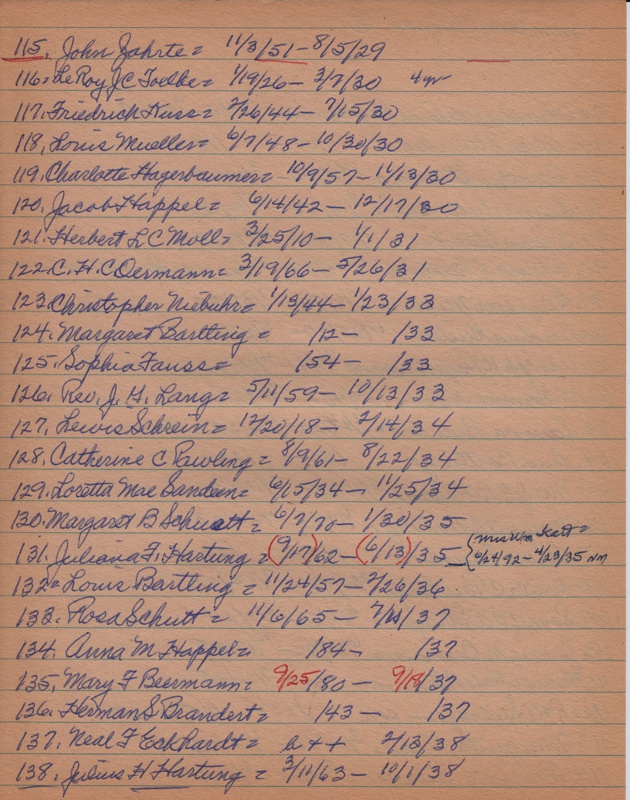 115. John Zahrte = 11/3/51 - 8/5/29
116 = LeRoy J C Toelke = 1/19/26 - 3/7/30 4 yr
117. Friedrich Kuss = 2/26/44 - 7/15/30
118. Louis Mueller = 6/7/48 - 10/30/30
119. Charlotte Hagerbaumer = 10/9/57 - 11/13/30
120. Jacob Happel = 6/14/42 - 12/17/30
121. Herbert L C Moll = 3/25/10 - 1/1/31
122. C. H. C Oermann = 3/19/66 - 5/26/31
123. Christopher Niebuhr = 1/13/44 - 1/23/33
124. Margaret Bartling = /12 - /33
125. Sophia Fauss = /54 - /33
126. Rev. J. H. Lang = 5/11/59 - 10/13/33
127. Lewis Schrein = 12/20/18 - 2/14/34
128. Catherine C Rawling = 8/9/61 - 8/22/34
129. Loretta Mae Sandeen = 6/15/34 - 11/25/34
130. Margaret B Schuett = 6/7/70 - 1/30/35
131. Juliana F. Hartung = (9/17)/62 - (6/13)/35 { Mrs Wm =
6/24/92 - 4/23/35
132 = Louis Bartling = 11/24/57 - 2/26/36
133. Rosa Schutt = 11/6/65 - /37
134. Anna M. Happel = /84 - /37
135. Mary F Beermann = 9/25/80 - /37
136. Herman S Brandert = /43 - /37
137. Neal F Eckhardt = b + + 2/13/38
138. Julius H Hartung = 3/11/63 - 10/1/38